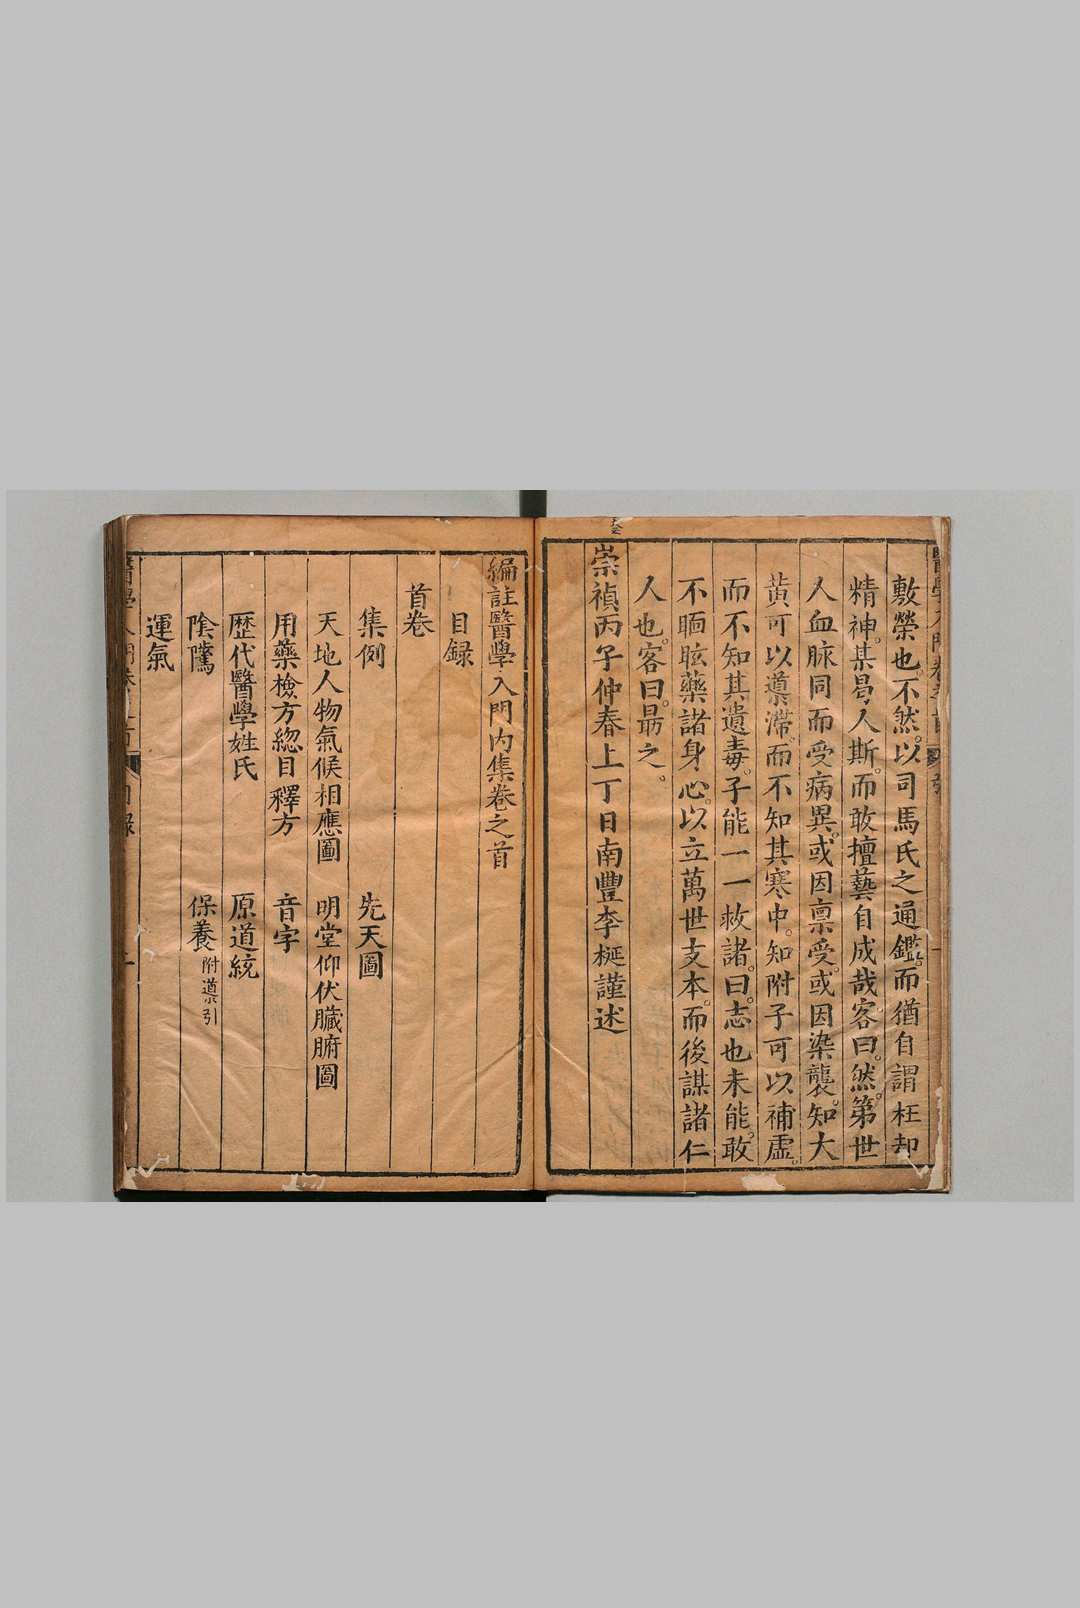 敷榮也。不然。以司馬氏之通鑑。而猶自謂枉却
精神。某曷人斯。而敢擅藝自成哉。客曰。然。第世
人血脉同而受病異。或因禀受。或因染襲。知大
黄可以導滯。而不知其寒中。知附子可以補虛。
而不知其遺毒。子能一一救諸。曰。志也未能。敢
不瞑眩藥諸身心。以立萬世支本。而後謀諸仁
人也。客曰。勗之。
崇禎丙子仲春上丁日南豐李梴謹述
編註醫學入門內集卷之首
目録
首卷
集例 先天圖
天地人物氣候相應圖 明堂仰伏臟腑圖
用藥檢方緫目 釋方 音字
歷代醫學姓氏 原道統
陰隲 保養附導引
運氣